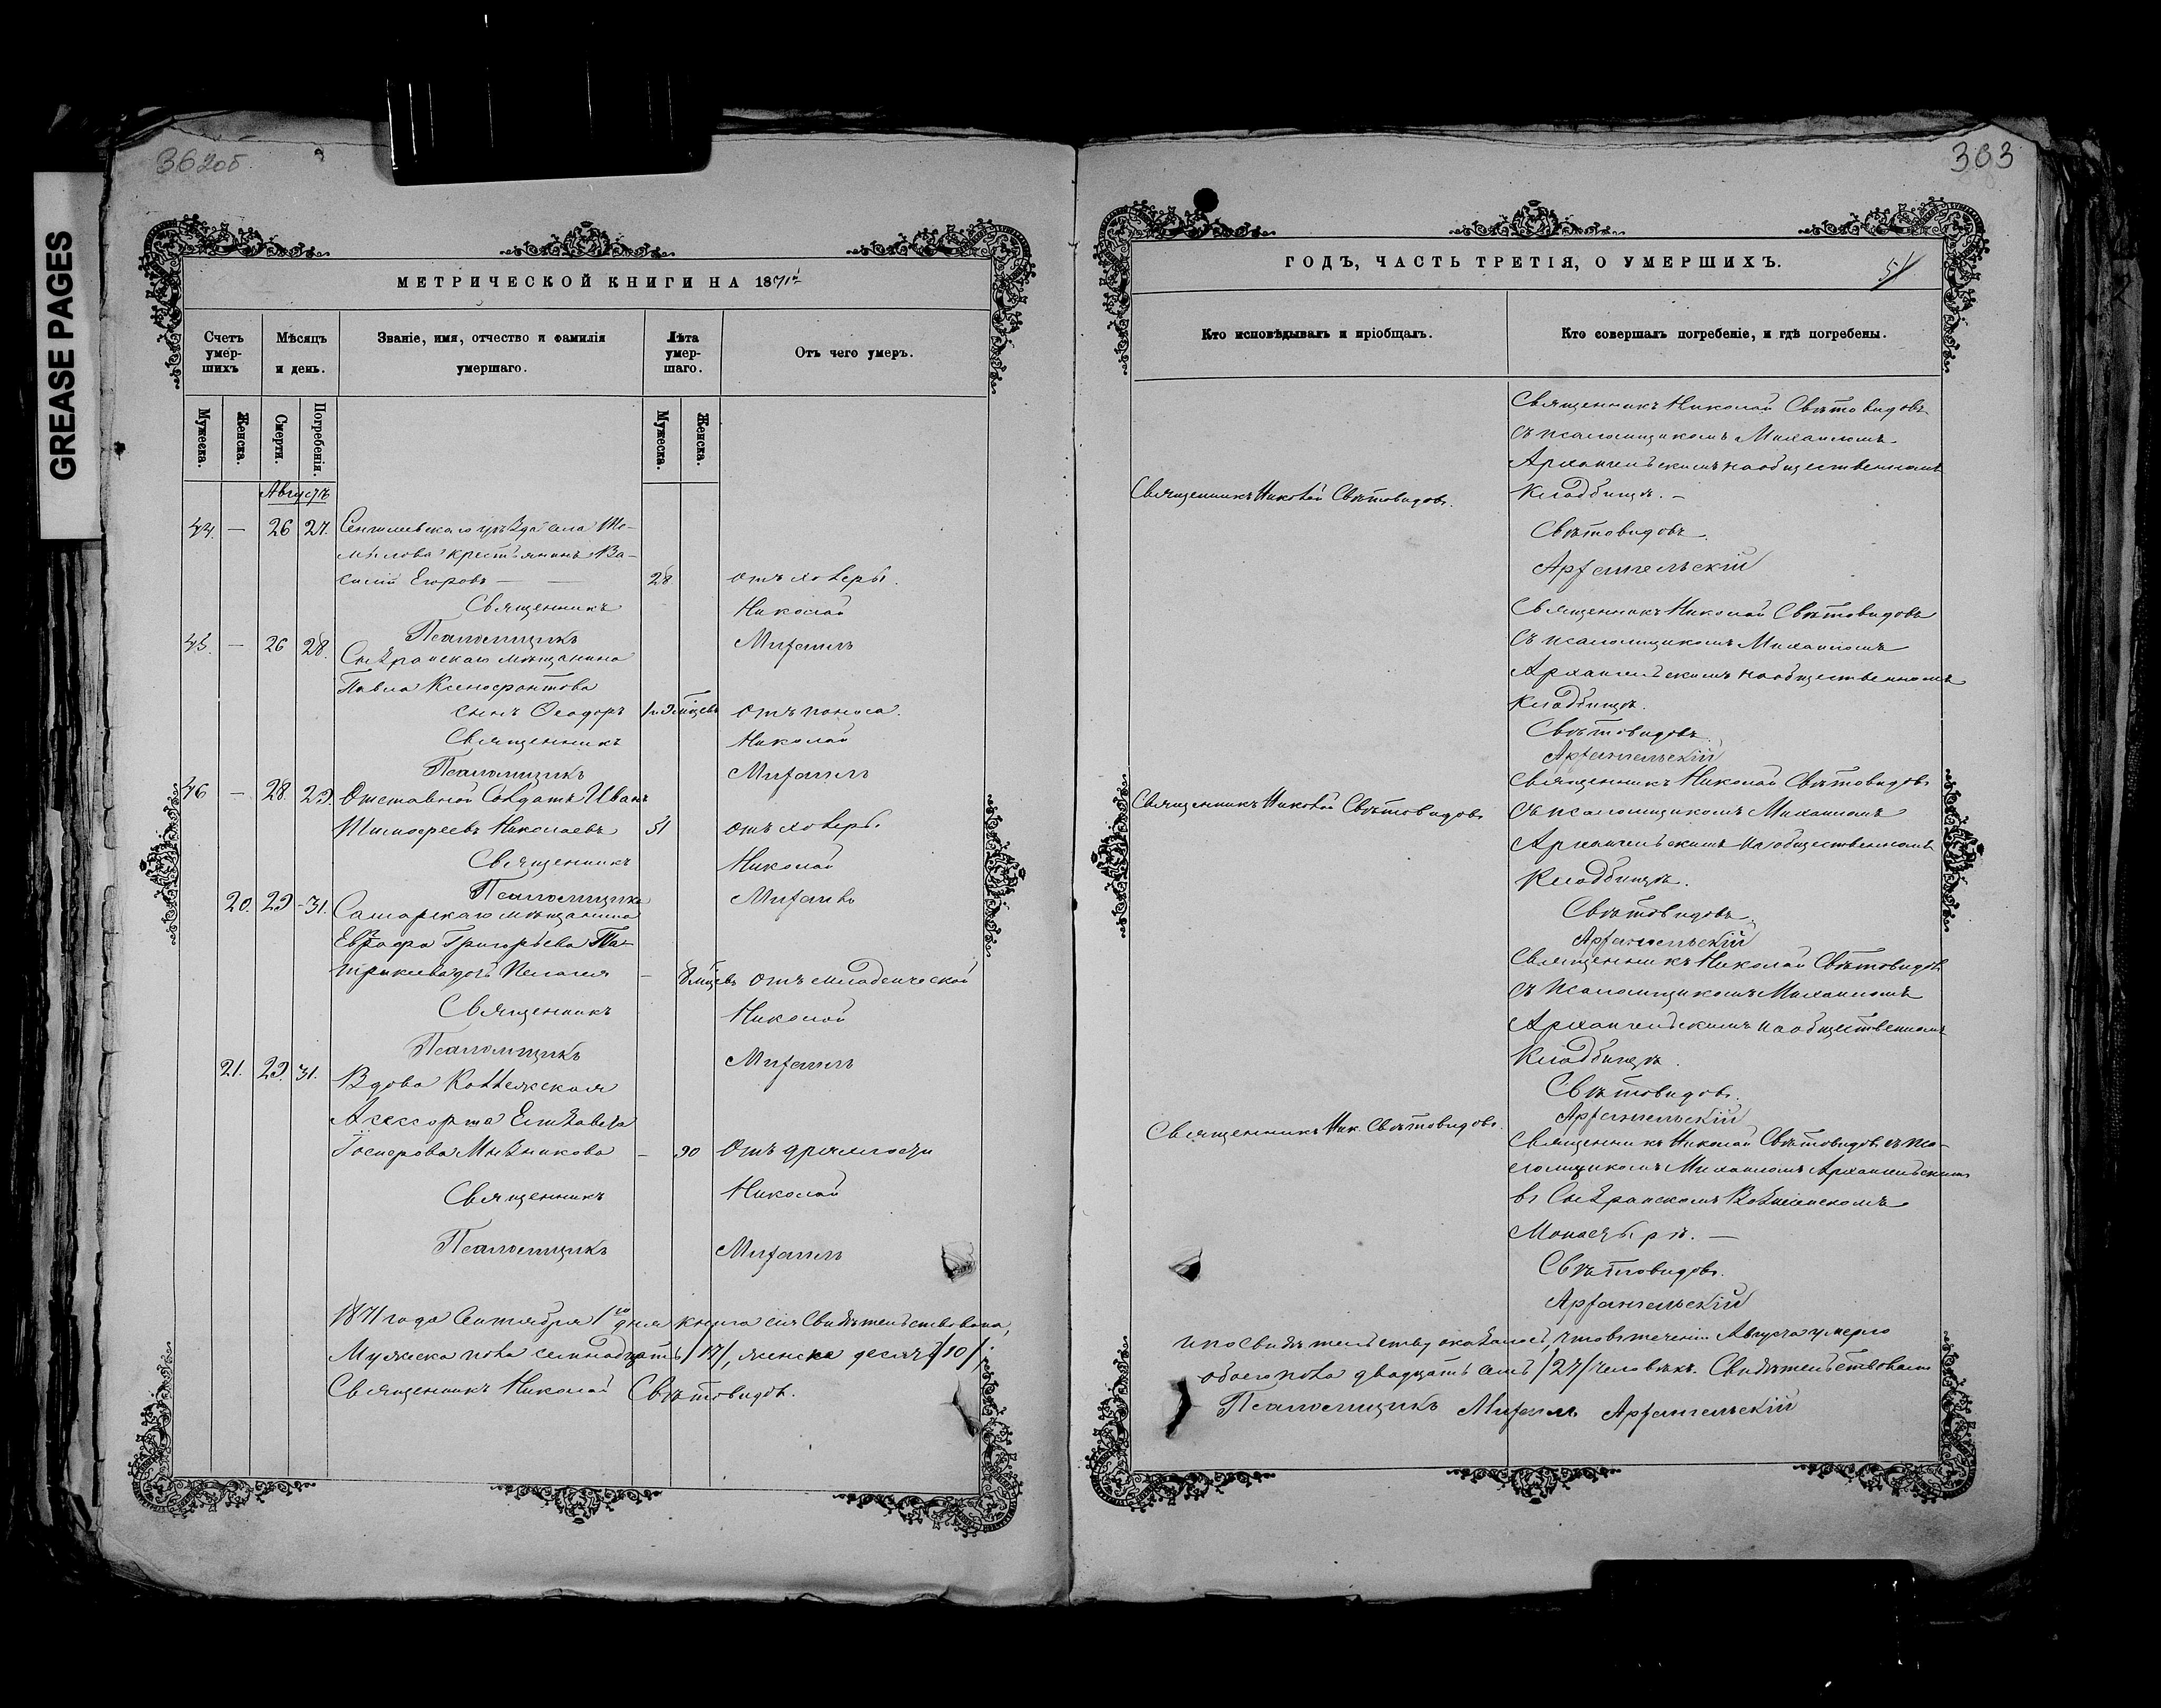 GREASE PAGES
362 об.
МЕТРИЧЕСКОЙ КНИГИ НА 1871й
Счетъ умер- шихъ
Мѣсяцъ и день.
Званіе, имя, отчество и фамилія умершаго.
Лѣта умер- шаго.
Отъ чего умеръ.
Мужеска.
Женска.
Смерти.
Погребенія.
Мужеска.
Женска.
Августъ
44. — 26 27. Сенгилеевскаго уѣзда села
крестьянинъ Ва-
силій Егоровъ — — 28 отъ холеры.
Священникъ Николай
Псаломщикъ Михаилъ
45. — 26 28. Сызранскаго мѣщанина
Павла Ксенофонтова
сынъ Ѳеодоръ отъ поноса.
Священникъ Николай
Псаломщикъ Михаилъ
46 — 28. 29. Отставной Солдатъ Иванъ
Тимофеевъ Николаевъ 51 отъ холеры.
Священникъ Николай
Псаломщикъ Михаилъ
20. 29 - 31. Самарскаго мѣщанина
Евграфа Григорьева Па-
трикеева дочь Пелагея — 8 мѣцевъ отъ младенческой
Священникъ Николай
Псаломщикъ Михаилъ
21. 29. 31. Вдова Коллежская
Ассесорша Елизавета
Мызникова — 90 Отъ дряхлости
Священникъ Николай
Псаломщикъ Михаилъ
1871 года Сентября 1го дня книга сія Свидѣтельствована,
Мужеска пола семнадцать /17/, женска десять /10/;
Священникъ Николай Свѣтовидовъ.
363
51
ГОДЪ, ЧАСТЬ ТРЕТІЯ, О УМЕРШИХЪ.
Кто исповѣдывалъ и пріобщалъ.
Кто совершалъ погребеніе, и гдѣ погребены.
Священникъ Николай Свѣтовидовъ
съ псаломщикомъ Михаиломъ
Архангельскимъ на общественномъ
Священникъ Николай Свѣтовидовъ.
Кладбищѣ. —
Свѣтовидовъ.
Архангельскій
Священникъ Николай Свѣтовидовъ
съ псаломщикомъ Михаиломъ
Архангельскимъ на общественномъ
Кладбищѣ.
Свѣтовидовъ.
Архангельскій
Священникъ Николай Свѣтовидовъ
Священникъ Николай Свѣтовидовъ
съ псаломщикомъ Михаиломъ
Архангельскимъ на общественномъ
Кладбищѣ.
Свѣтовидовъ.
Архангельскій
Священникъ Николай Свѣтовидовъ
съ псаломщикомъ Михаиломъ
Архангельскимъ на общественномъ
Кладбищѣ.
Свѣтовидовъ.
Архангельскій
Священникъ Ник. Свѣтовидовъ.
Священникъ Николай Свѣтовидовъ съ пса-
ломщикомъ Михаиломъ Архангельскимъ
въ Сызранскомъ Вознесенскомъ
Монастырѣ. —
Свѣтовидовъ.
Архангельскій
и по свидѣтельству оказалось, что въ теченіи Августа умерло
обоего пола двадцать семь /27/ человѣкъ. Свидѣтельствовали
Псаломщикъ Михаилъ Архангельскій